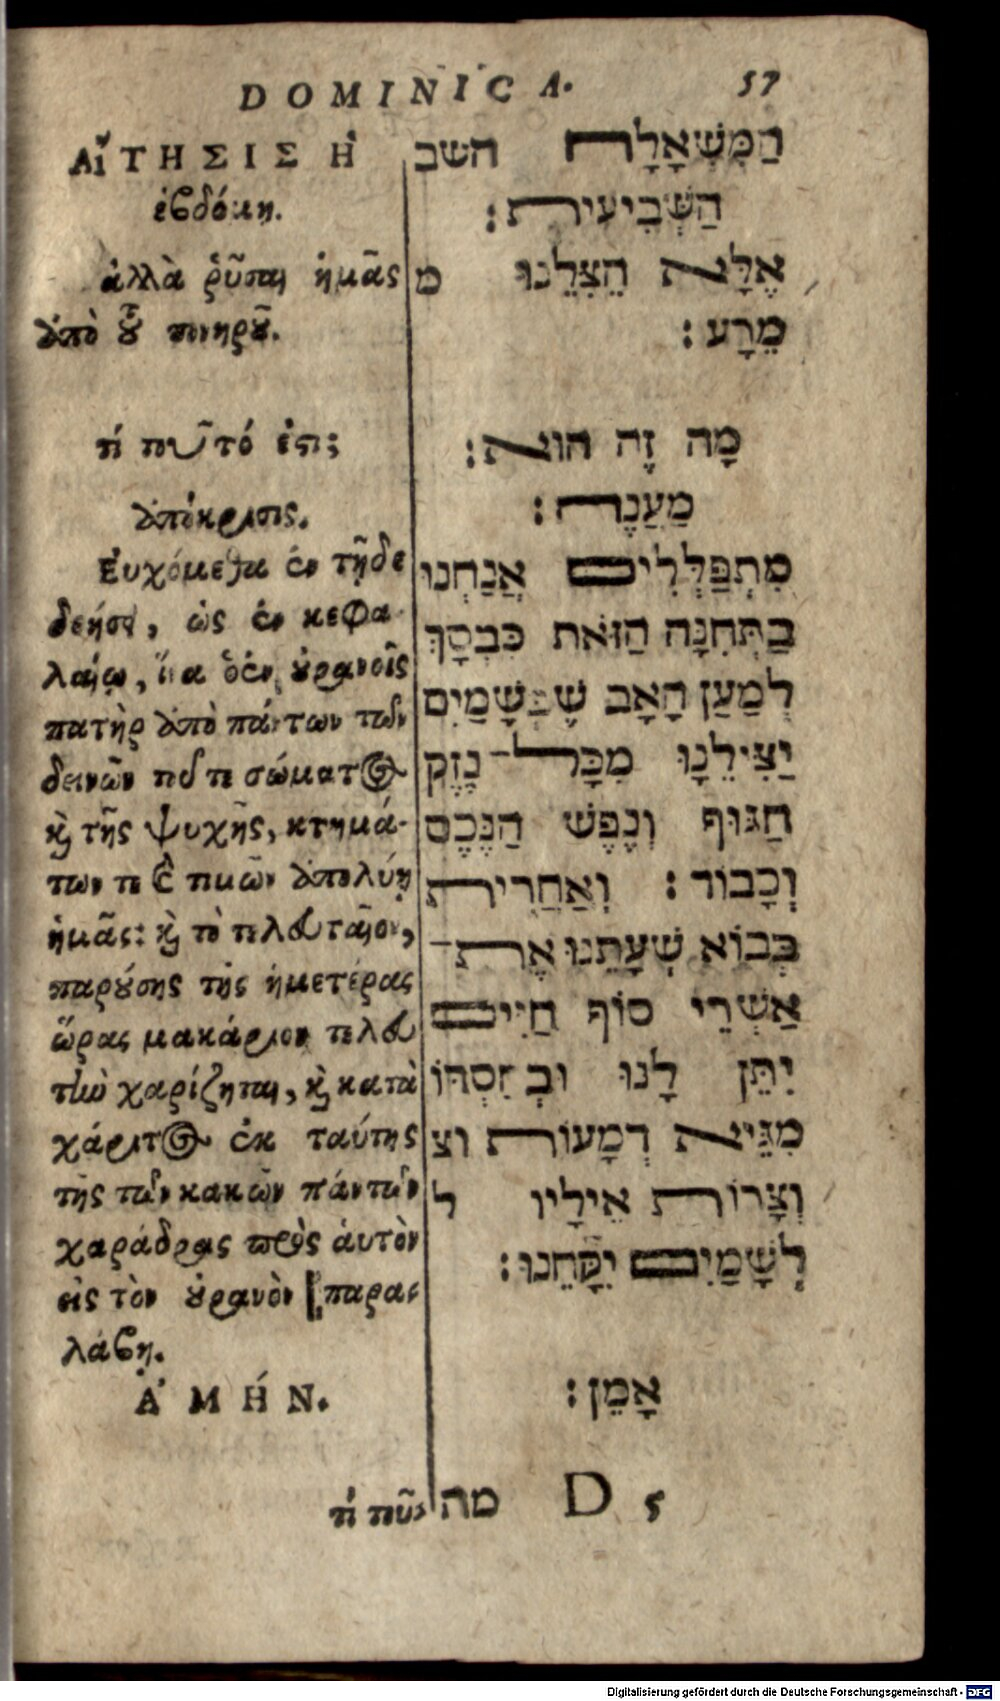 DOMINICA. 57
Αἴ ΤΗΣΙΣ Ἡ
ἑβδόμη.
ἀλλὰ ῥῦσαι ἡμᾶς
ἀπὸ τοῦ πονηροῦ.
τί τοῦτό ἐστι;
ἀπόκρισις.
Εὐχόμεθα ἐν τῇδε
δεήσει, ὡς ἐν κεφα-
λαίῳ, ἵνα ὁ ἐν οὐρανοῖς
πατὴρ ἀπὸ πάντων τῶν
δεινῶν τοῦ τε σώματος
καὶ τῆς ψυχῆς, κτημά-
των τε καὶ τιμῶν ἀπολύῃ
ἡμᾶς: καὶ τὸ τελευταῖον,
παρούσης τῆς ἡμετέρας
ὥρας μακάριον τελευ
τὴν χαρίζηται, καὶ κατὰ
χάριτος ἐκ ταύτης
τῆς τῶν κακῶν πάντων
χαράδρας πρὸς ἁυτὸν
εἰς τὸν οὐρανὸν παρα-
λάβῃ.
ἈΜΉΝ.
τί τοῦ-
הַמִּשְׁאָלָה השב
הַשְּׁבִיעִית:
אֶלָּא הַצִּלֵנוּ מ
מֵרָע:
מָה זֶה הוּא:
מַעֲנֶה:
מִתְפַּלְּלִים אֲנַחְנוּ
בַתְּחִנָּה הַזּאֹת כִּבְסָךְ
לְמַעַן הָאָב שֶׁבְּשָׁמַיִם
יַצִּילֵנָוּ מִכָּל־נֶזֶק
הַגּוּף וְנֶפֶשׁ הַנֶּכֶם
וְכָבוֹד: וְאַחֲרִית
בְּבוֹא שְׁעָתֵנוּ אֶת־
אַשְׁרֵי סוֹף חַיִּים
יִתֵּן לָנוּ וּבְחִסְדּוֹ
מִגֵּיא דְמָעוֹת וצ
וְצָרוֹת אֵילָיו ל
לְשָׁמַיִם יִקָּחֵנוּ:
אָמֵן:
מה D 5
Digitalisierung gefördert durch die Deutsche Forschungsgemeinschaft - DFG